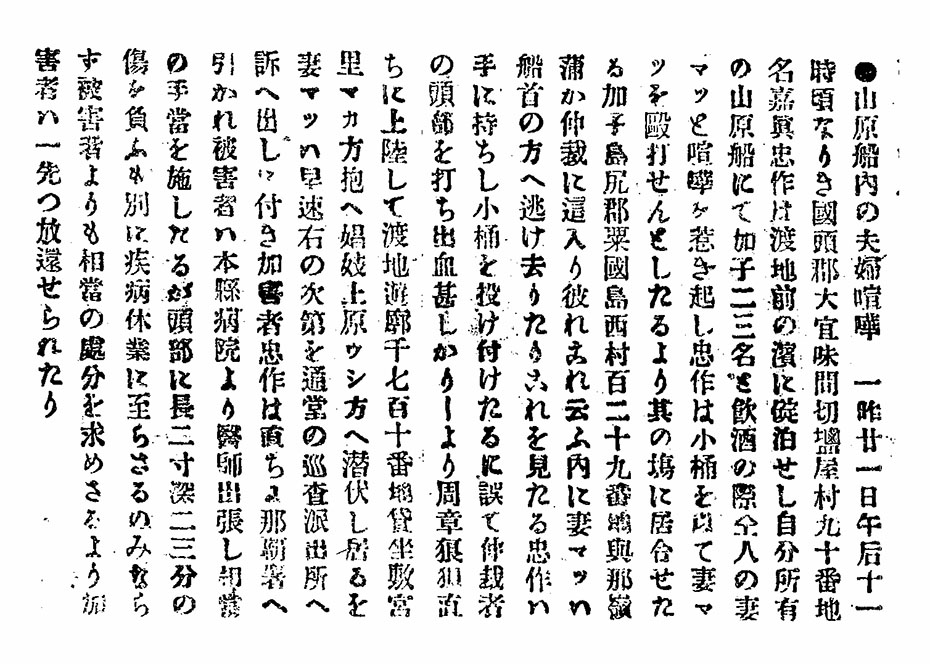 ●山原船內の夫婦喧嘩　一昨廿一日午后十一
時頃なりき國頭郡大宜味間切鹽屋村九十番地
名嘉眞忠作は渡地前の濱に碇泊せし自分所有
の山原船にて加子二三名と飲酒の際仝人の妻
マツと喧嘩を惹き起し忠作は小桶を以て妻マ
ツを毆打せんとしたるより其の塲に居合せた
る加子島尻郡粟國島西村百二十九番地與那嶺
蒲か仲裁に這入り彼れ是れ云ふ內に妻マツハ
船首の方へ逃け去りたり是れを見たる忠作ハ
手に持ちし小桶を投け付けたるに誤て仲裁者
の頭部を打ち出血甚しかりしより周章狼狽直
ちに上陸して渡地遊廓千七百十番地貸坐敷宮
里マカ方抱へ娼妓上原ウシ方へ潜伏し居るを
妻マツハ早速右の次第を通堂の巡査派出所へ
訴へ出しに付き加害者忠作は直ちよ那覇署へ
引かれ被害者ハ本縣病院より醫師出張し相當
の手當を施したるが頭部に長二寸深二三分の
傷を負ふも別に疾病休業に至らさるのみなら
す被害者よりも相當の處分を求めさるより加
害者ハ一先つ放還せられたり